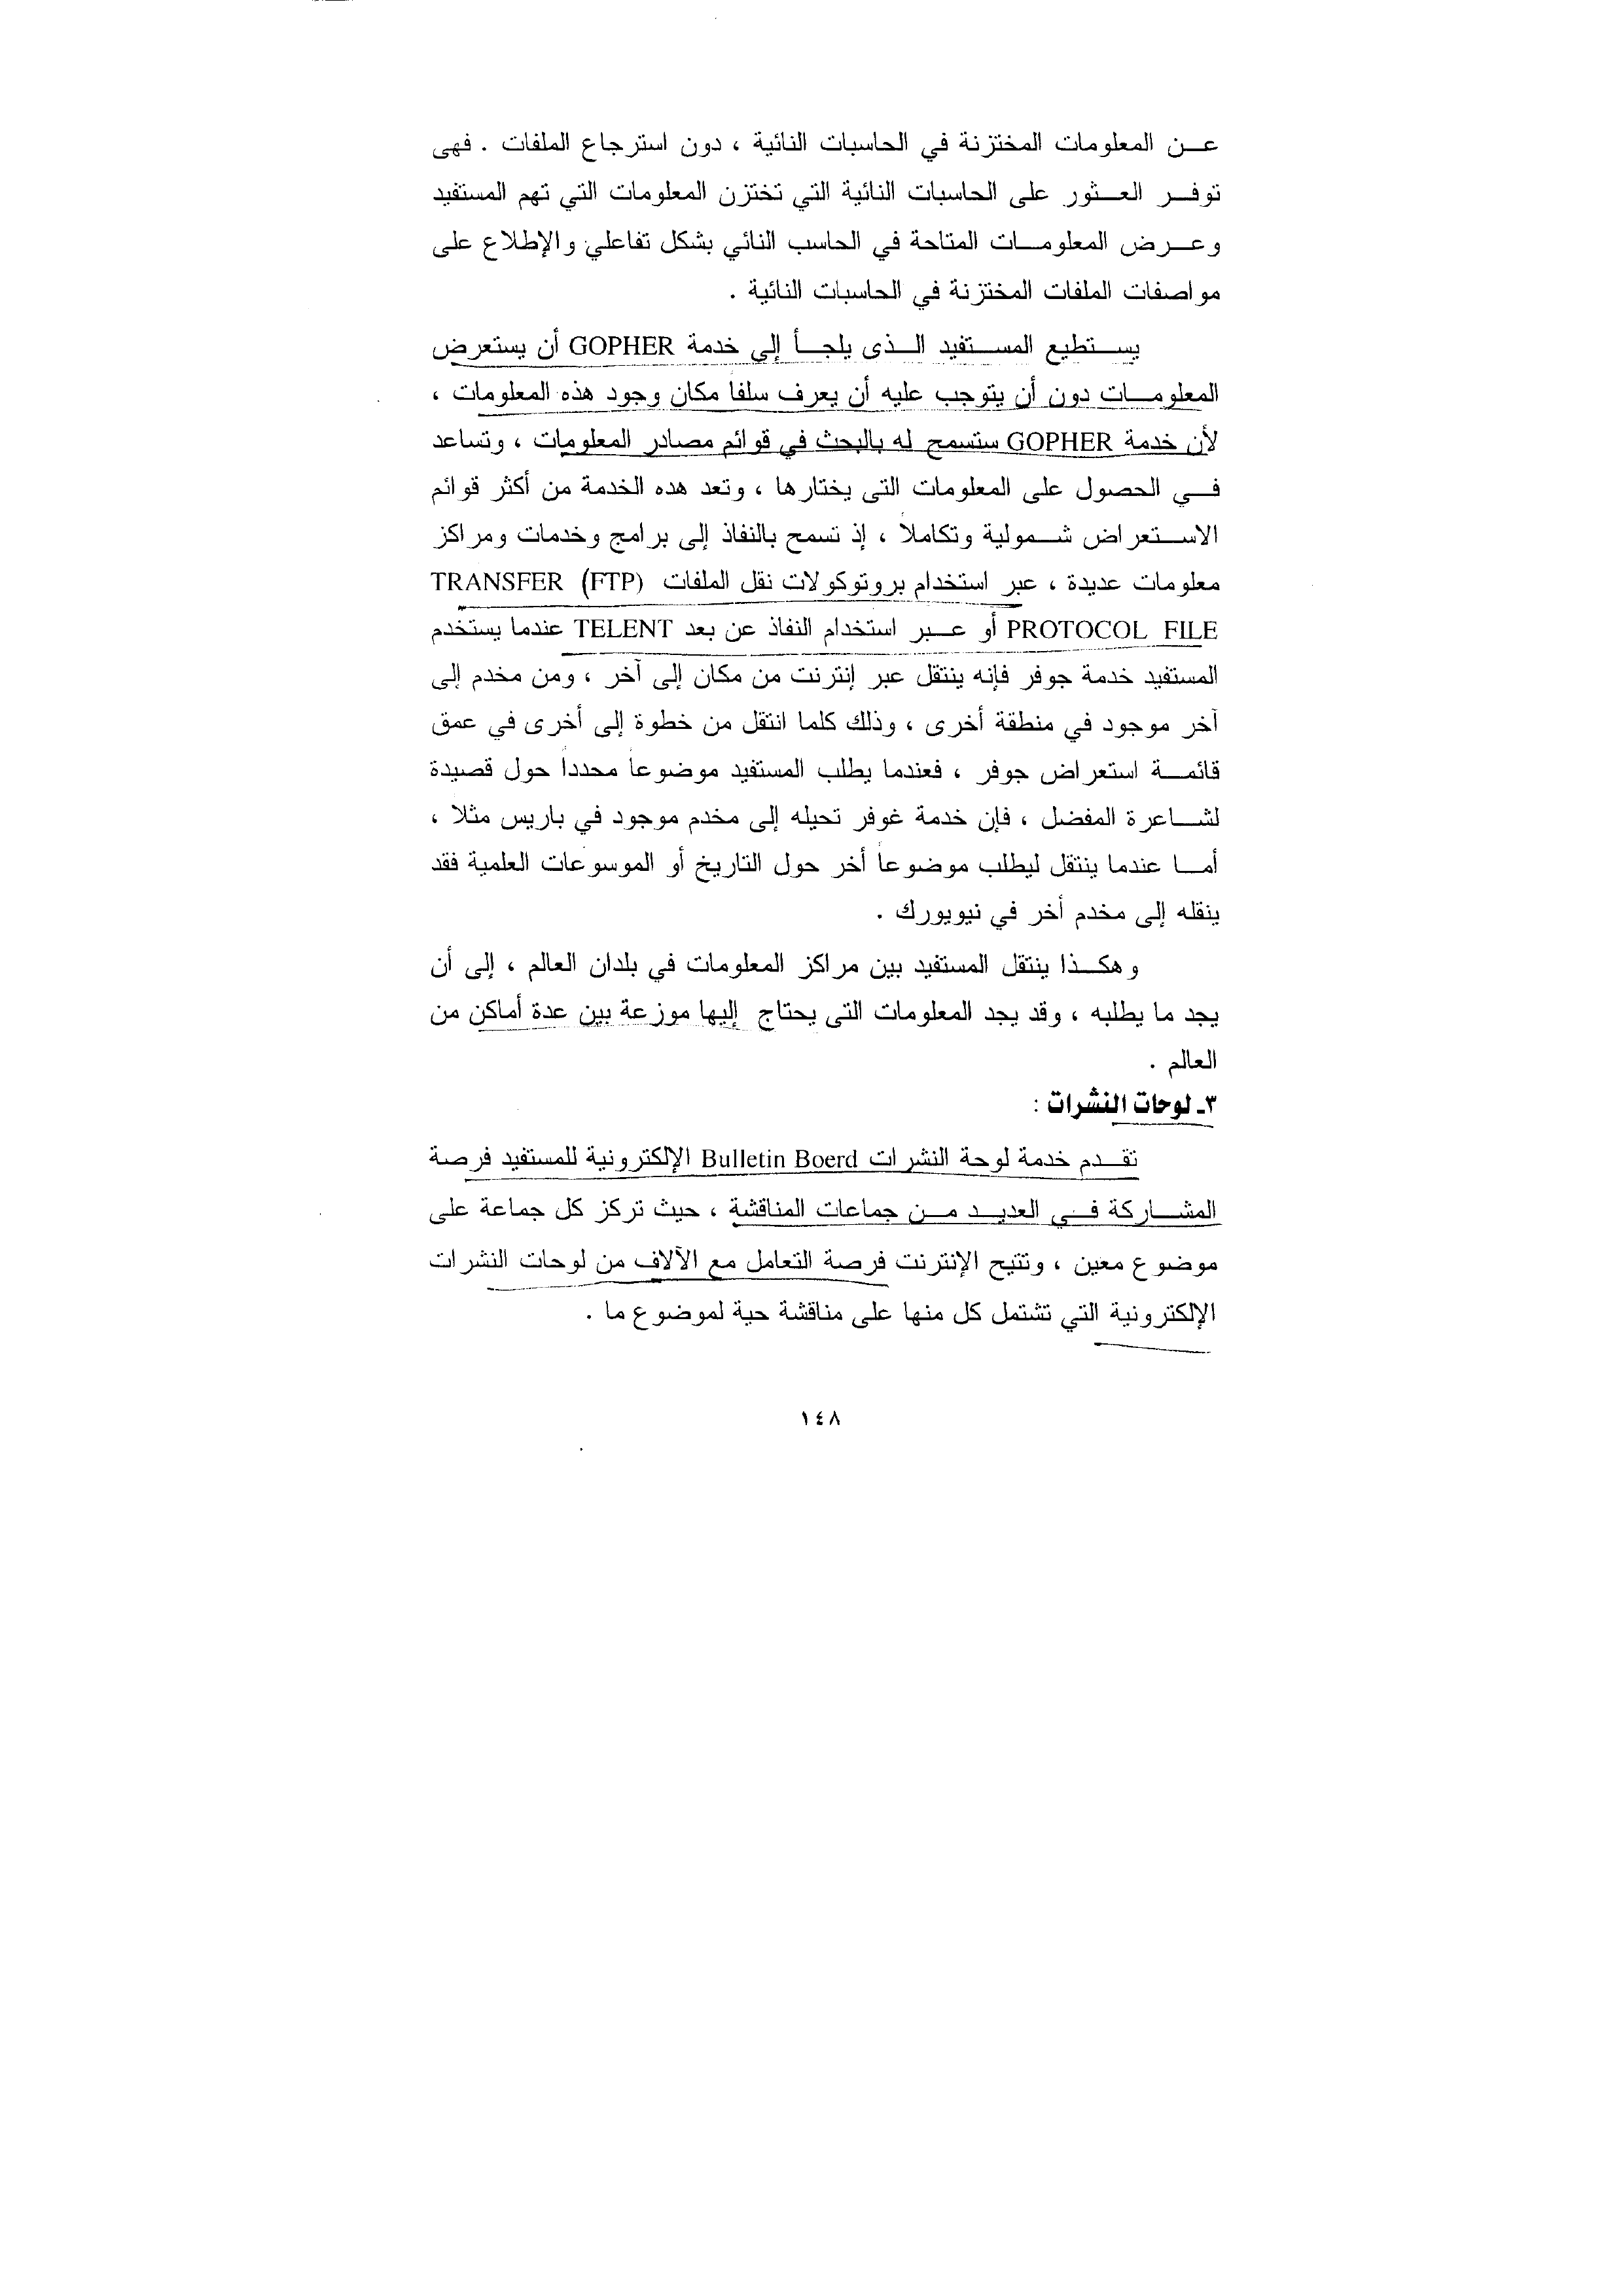 عن المعلومات المختزنة في الحاسبات النائية ، دون استرجاع الملفات . فهى
توفر العثور على الحاسبات النائية التي تختزن المعلومات التي تهم المستفيد
وعرض المعلومات المتاحة في الحاسب النائي بشكل تفاعلي والإطلاع على
مواصفات الملفات المختزنة في الحاسبات النائية .
يستطيع المستفيد الذى يلجأ إلي خدمة GOPHER أن يستعرض
المعلومات دون أن يتوجب عليه أن يعرف سلفاً مكان وجود هذه المعلومات ،
لأن خدمة GOPHER ستسمح له بالبحث في قوائم مصادر المعلومات ، وتساعد
في الحصول على المعلومات التى يختارها ، وتعد هذه الخدمة من أكثر قوائم
الاستعراض شمولية وتكاملاً ، إذ تسمح بالنفاذ إلى برامج وخدمات ومراكز
معلومات عديدة ، عبر استخدام بروتوكولات نقل الملفات TRANSFER (FTP)
PROTOCOL FILE أو عبر استخدام النفاذ عن بعد TELENT عندما يستخدم
المستفيد خدمة جوفر فإنه ينتقل عبر إنترنت من مكان إلى آخر ، ومن مخدم إلى
آخر موجود في منطقة أخرى ، وذلك كلما انتقل من خطوة إلى أخرى في عمق
قائمة استعراض جوفر ، فعندما يطلب المستفيد موضوعاً محدداً حول قصيدة
لشاعرة المفضل ، فإن خدمة غوفر تحيله إلى مخدم موجود في باريس مثلا ،
أما عندما ينتقل ليطلب موضوعاً أخر حول التاريخ أو الموسوعات العلمية فقد
ينقله إلى مخدم أخر في نيويورك .
وهكذا ينتقل المستفيد بين مراكز المعلومات في بلدان العالم ، إلى أن
يجد ما يطلبه ، وقد يجد المعلومات التى يحتاج إليها موزعة بين عدة أماكن من
العالم .
٣ـ لوحات النشرات :
تقدم خدمة لوحة النشرات Bulletin Boerd الإلكترونية للمستفيد فرصة
المشاركة في العديد من جماعات المناقشة ، حيث تركز كل جماعة على
موضوع معين ، وتتيح الإنترنت فرصة التعامل مع الآلاف من لوحات النشرات
الإلكترونية التي تشتمل كل منها على مناقشة حية لموضوع ما .
١٤٨